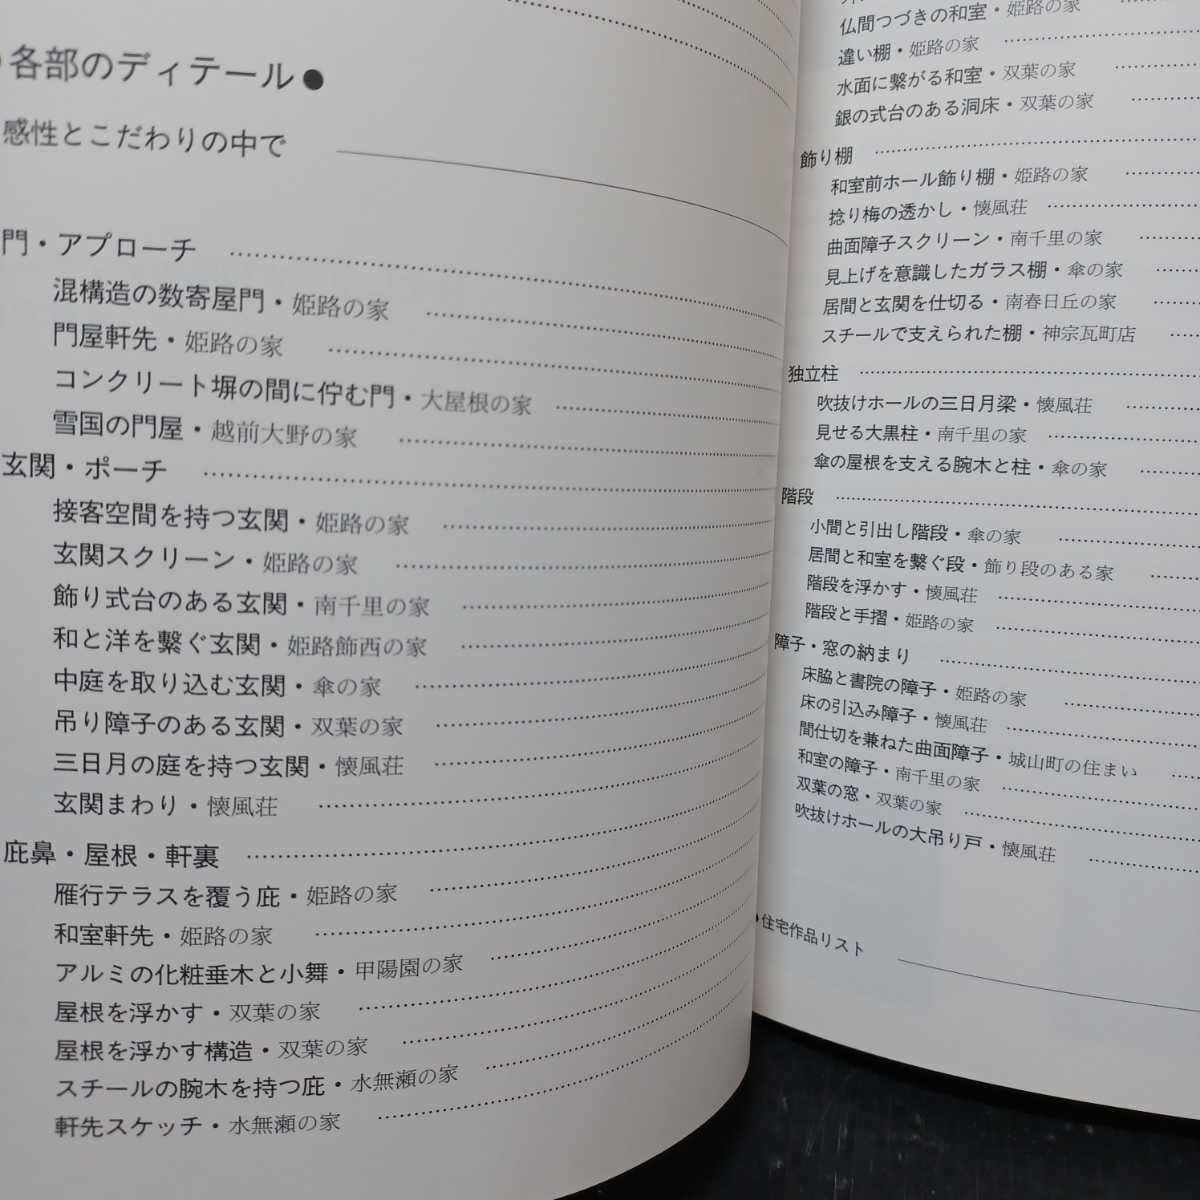 各部のディテール●
感性とこだわりの中で
門・アプローチ
混構造の数寄屋門・姫路の家
門屋軒先・姫路の家
コンクリート塀の間に佇む門・大屋根の家
雪国の門屋・越前大野の家
玄関・ポーチ
接客空間を持つ玄関・姫路の家
玄関スクリーン・姫路の家
飾り式台のある玄関・南千里の家
和と洋を繋ぐ玄関・姫路飾西の家
中庭を取り込む玄関・傘の家
吊り障子のある玄関・双葉の家
三日月の庭を持つ玄関・懐風荘
玄関まわり・懐風荘
庇鼻・屋根・軒裏
雁行テラスを覆う庇・姫路の家
和室軒先・姫路の家
アルミの化粧垂木と小舞・甲陽園の家
屋根を浮かす・双葉の家
屋根を浮かす構造・双葉の家
スチールの腕木を持つ庇・水無瀬の家
軒先スケッチ・水無瀬の家
仏間つづきの和室・姫路の家
違い棚・姫路の家
水面に繋がる和室・双葉の家
銀の式台のある洞床・双葉の家
飾り棚
和室前ホール飾り棚・姫路の家
捻り梅の透かし・懐風荘
曲面障子スクリーン・南千里の家
見上げを意識したガラス棚・傘の家
居間と玄関を仕切る・南春日丘の家
スチールで支えられた棚・神宗瓦町店
独立柱
吹抜けホールの三日月梁・懐風荘
見せる大黒柱・南千里の家
傘の屋根を支える腕木と柱・傘の家
階段
小間と引出し階段・傘の家
居間と和室を繋ぐ段・飾り段のある家
階段を浮かす・懐風荘
階段と手摺・姫路の家
障子・窓の納まり
床脇と書院の障子・姫路の家
床の引込み障子・懐風荘
間仕切を兼ねた曲面障子・城山町の住まい
和室の障子・南千里の家
双葉の窓・双葉の家
吹抜けホールの大吊り戸・懐風荘
●住宅作品リスト